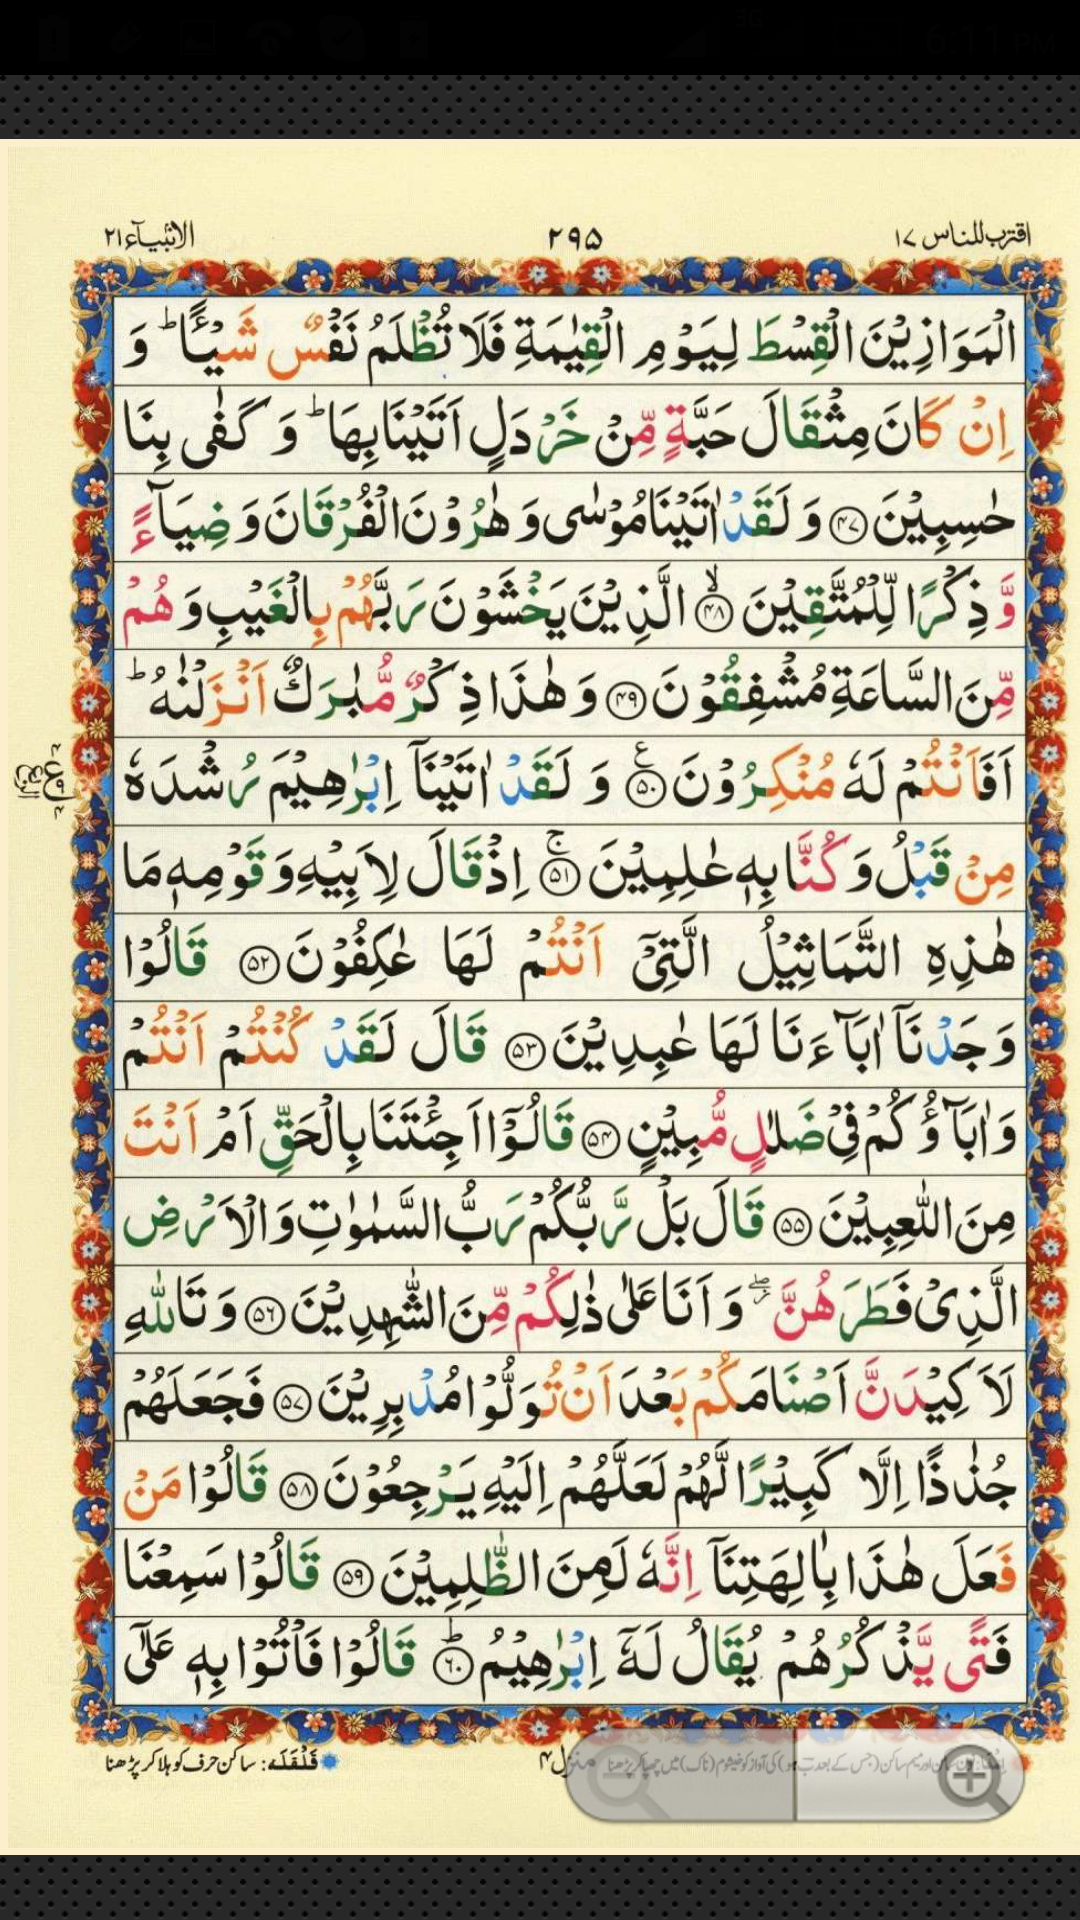 6:11 PM
اقترب للناس ١٧
٢٩٥
الانبیآء ٢١
الْمَوَازِيْنَ الْقِسْطَ لِيَوْمِ الْقِيٰمَةِ فَلَا تُظْلَمُ نَفْسٌ شَيْـًٔا ؕ وَ
اِنْ كَانَ مِثْقَالَ حَبَّةٍ مِّنْ خَرْدَلٍ اَتَيْنَا بِهَا ؕ وَ كَفٰى بِنَا
حٰسِبِيْنَ ﴿۴۷﴾ وَ لَقَدْ اٰتَيْنَا مُوْسٰى وَ هٰرُوْنَ الْفُرْقَانَ وَ ضِيَآءً
وَّ ذِكْرًا لِّلْمُتَّقِيْنَ ﴿ۙ۴۸﴾ الَّذِيْنَ يَخْشَوْنَ رَبَّهُمْ بِالْغَيْبِ وَ هُمْ
مِّنَ السَّاعَةِ مُشْفِقُوْنَ ﴿۴۹﴾ وَ هٰذَا ذِكْرٌ مُّبٰرَكٌ اَنْزَلْنٰهُ ؕ
اَفَاَنْتُمْ لَهٗ مُنْكِرُوْنَ ﴿۵۰﴾ وَ لَقَدْ اٰتَيْنَاۤ اِبْرٰهِيْمَ رُشْدَهٗ
مِنْ قَبْلُ وَ كُنَّا بِهٖ عٰلِمِيْنَ ﴿ۚ۵۱﴾ اِذْ قَالَ لِاَبِيْهِ وَ قَوْمِهٖ مَا
هٰذِهِ التَّمَاثِيْلُ الَّتِيْۤ اَنْتُمْ لَهَا عٰكِفُوْنَ ﴿۵۲﴾ قَالُوْا
وَجَدْنَاۤ اٰبَآءَنَا لَهَا عٰبِدِيْنَ ﴿۵۳﴾ قَالَ لَقَدْ كُنْتُمْ اَنْتُمْ
وَ اٰبَآؤُكُمْ فِيْ ضَلٰلٍ مُّبِيْنٍ ﴿۵۴﴾ قَالُوْۤا اَجِئْتَنَا بِالْحَقِّ اَمْ اَنْتَ
مِنَ اللّٰعِبِيْنَ ﴿۵۵﴾ قَالَ بَلْ رَّبُّكُمْ رَبُّ السَّمٰوٰتِ وَ الْاَرْضِ
الَّذِيْ فَطَرَهُنَّ ۖؗ وَ اَنَا عَلٰى ذٰلِكُمْ مِّنَ الشّٰهِدِيْنَ ﴿۵۶﴾ وَ تَاللّٰهِ
لَاَكِيْدَنَّ اَصْنَامَكُمْ بَعْدَ اَنْ تُوَلُّوْا مُدْبِرِيْنَ ﴿۵۷﴾ فَجَعَلَهُمْ
جُذٰذًا اِلَّا كَبِيْرًا لَّهُمْ لَعَلَّهُمْ اِلَيْهِ يَرْجِعُوْنَ ﴿۵۸﴾ قَالُوْا مَنْ
فَعَلَ هٰذَا بِاٰلِهَتِنَاۤ اِنَّهٗ لَمِنَ الظّٰلِمِيْنَ ﴿۵۹﴾ قَالُوْا سَمِعْنَا
فَتًى يَّذْكُرُهُمْ يُقَالُ لَهٗۤ اِبْرٰهِيْمُ ﴿ؕ۶۰﴾ قَالُوْا فَاْتُوْا بِهٖ عَلٰۤى
منزل ۴
قَلْقَلَه: ساکن حرف کو ہلا کر پڑھنا